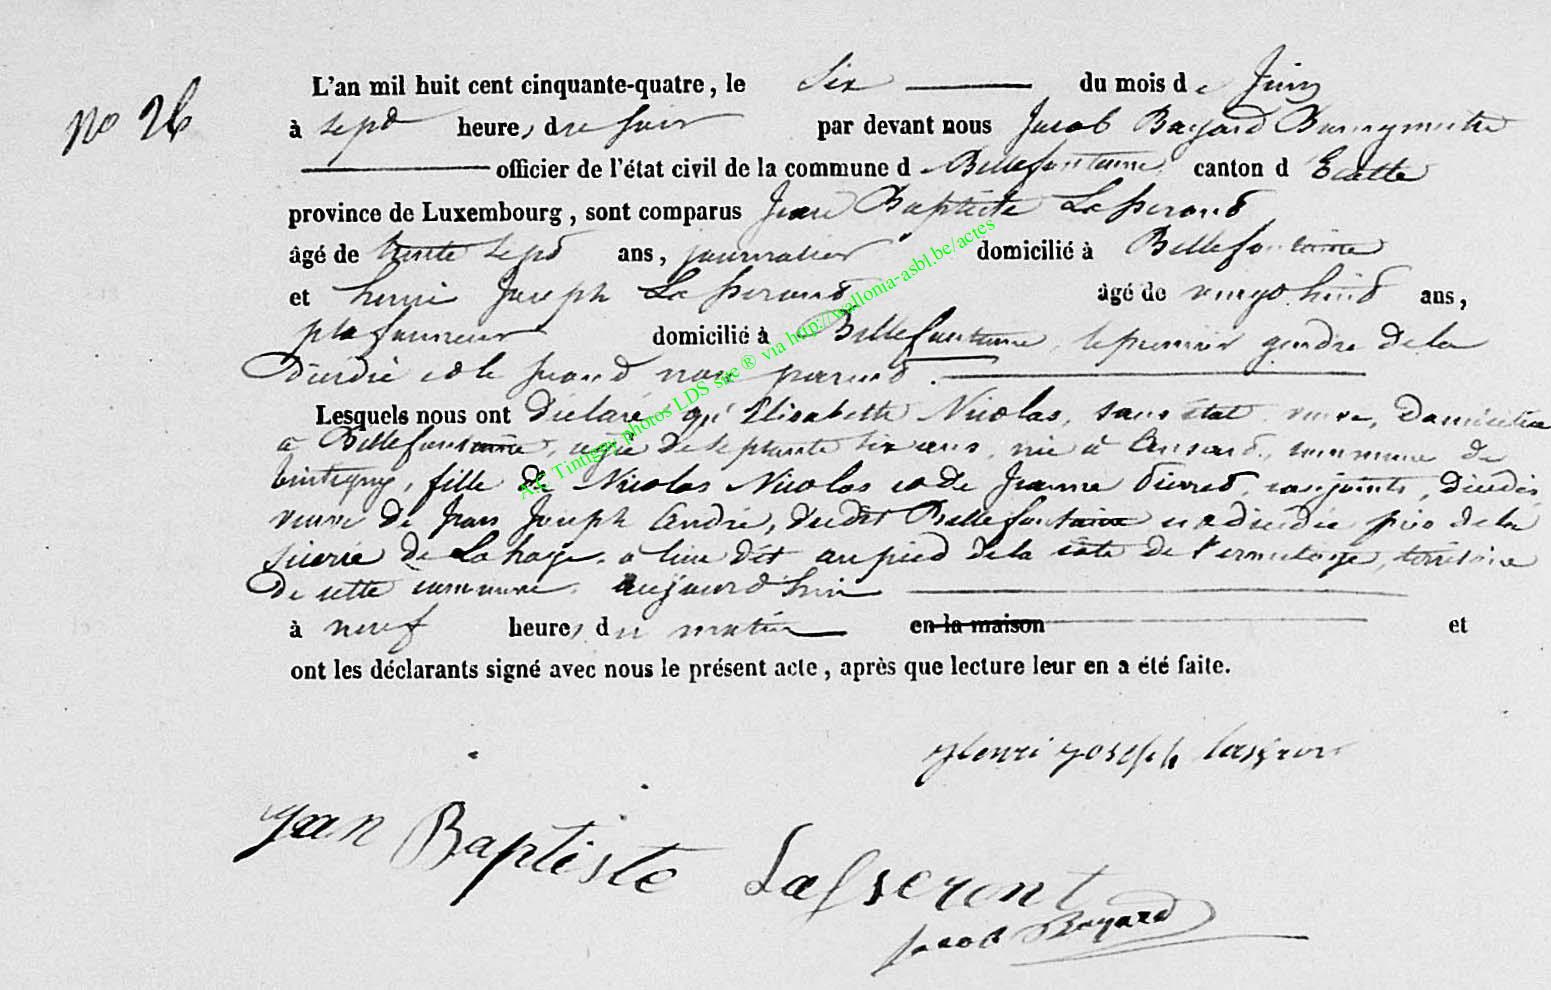 No 26
L'an mil huit cent cinquante-quatre, le Six du mois de Juin
à sept heures du soir par devant nous Jacob Bayard Bourgmestre
officier de l'état civil de la commune d Bellefontaine canton d Etalle
province de Luxembourg, sont comparus Jean Baptiste Lasseront
âgé de trente sept ans, journalier domicilié à Bellefontaine
et henri Joseph Lasseront âgé de vingt huit ans,
plafonneur domicilié à Bellefontaine, le premier gendre de la
Décédée et le second non parent.
Lesquels nous ont déclaré qu'Elisabeth Nicolas, sans état, veuve, Domiciliée
à Bellefontaine, agée de septante six ans, née à Ansart, commune de
tintigny, fille de Nicolas Nicolas et de Jeanne Pierret, conjoints, Décédés
veuve de Jean Joseph André, dudit Bellefontaine est décédée près de la
de Lahage, à lieu dit au pied de la côte de l'ermitage, térritoire
De cette commune, aujourd'hui
à neuf heures du matin en la maison et
ont les déclarants signé avec nous le présent acte, après que lecture leur en a été faite.
Henri Joseph
Jean Baptiste Lasseront
Jacob Bayard
A.E. Tintigny photos LDS site ® via http://wallonia-asbl.be/actes